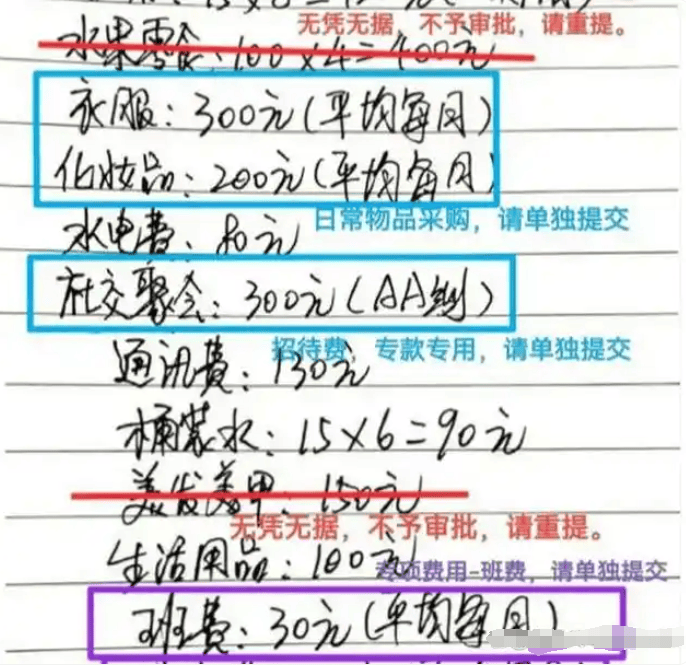 无凭无据，不予审批，请重提。
水果零食：100×4=400元
衣服：300元(平均每月)
化妆品：200元(平均每月)
日常物品采购，请单独提交
水电费：80元
社交聚会：300元(AA制)
招待费，专款专用，请单独提交
通讯费：130元
桶装水：15×6=90元
美发美甲：150元
无凭无据，不予审批，请重提。
生活用品：100元
专项费用-班费，请单独提交
班费：30元(平均每月)